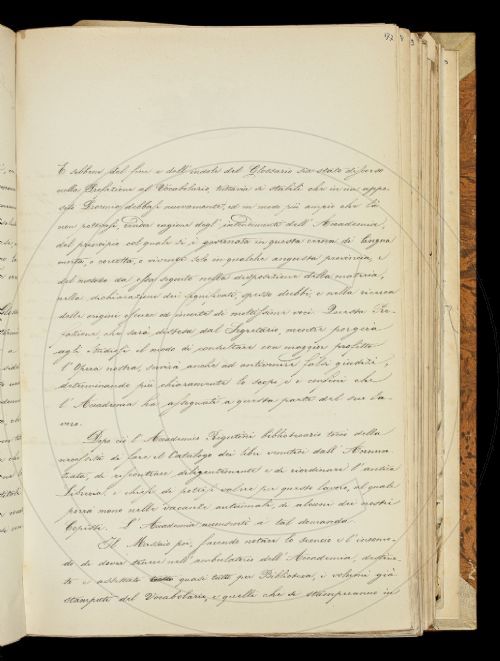 92
E sebbene del fine e dell'indole del Glossario sia stato discorso
nella Prefazione al Vocabolario, tuttavia si stabilì che in un appo-
sito Proemio debbasi nuovamente, ed in modo più ampio che là
non potevasi, render ragione degl'intendimenti dell'Accademia,
del principio col quale si è governata in questa cerna di lingua
morta, o corrotta, o vivente solo in qualche angusta provincia, e
del metodo da essa seguito nella disposizione della materia,
nella dichiarazione dei significati, spesso dubbj, e nella ricerca
delle origini oscure ed incerte di moltissime voci. Questa Pre-
fazione che sarà distesa dal Segretario, mentre porgerà
agli studiosi il modo di consultare con maggior profitto
l'Opera nostra, servirà anche ad antivenire falsi giudizi,
determinando più chiaramente lo scopo e i confini che
l'Accademia ha assegnati a questa parte del suo la-
voro.
Dopo ciò l'Accademico Rigutini bibliotecario tocca della
necessità di fare il Catalogo dei libri venutici dall'
di riscontrare diligentemente e di riordinare l'antica
Libreria e chiede di potersi valere per questo lavoro, al quale
porrà mano nelle vacanze autunnali, di alcuno dei nostri
Copisti. L'Accademia acconsente a tal domanda.
Il Massaio poi, facendo notare lo sconcio e l'incomo-
do di dover tenere nell'ambulatorio dell'Accademia, destina-
to e assettato quasi tutto per Biblioteca, i volumi già
stampati del Vocabolario, e quelli che si stamperanno in